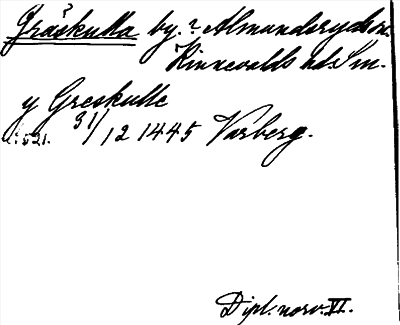 Gråskulla by. ? Almundsryds sn.
Kinnevalds hds Sm.
y Greskulle
s: 521. 31/12 1445 Varberg.
Dipl. norv. VI.